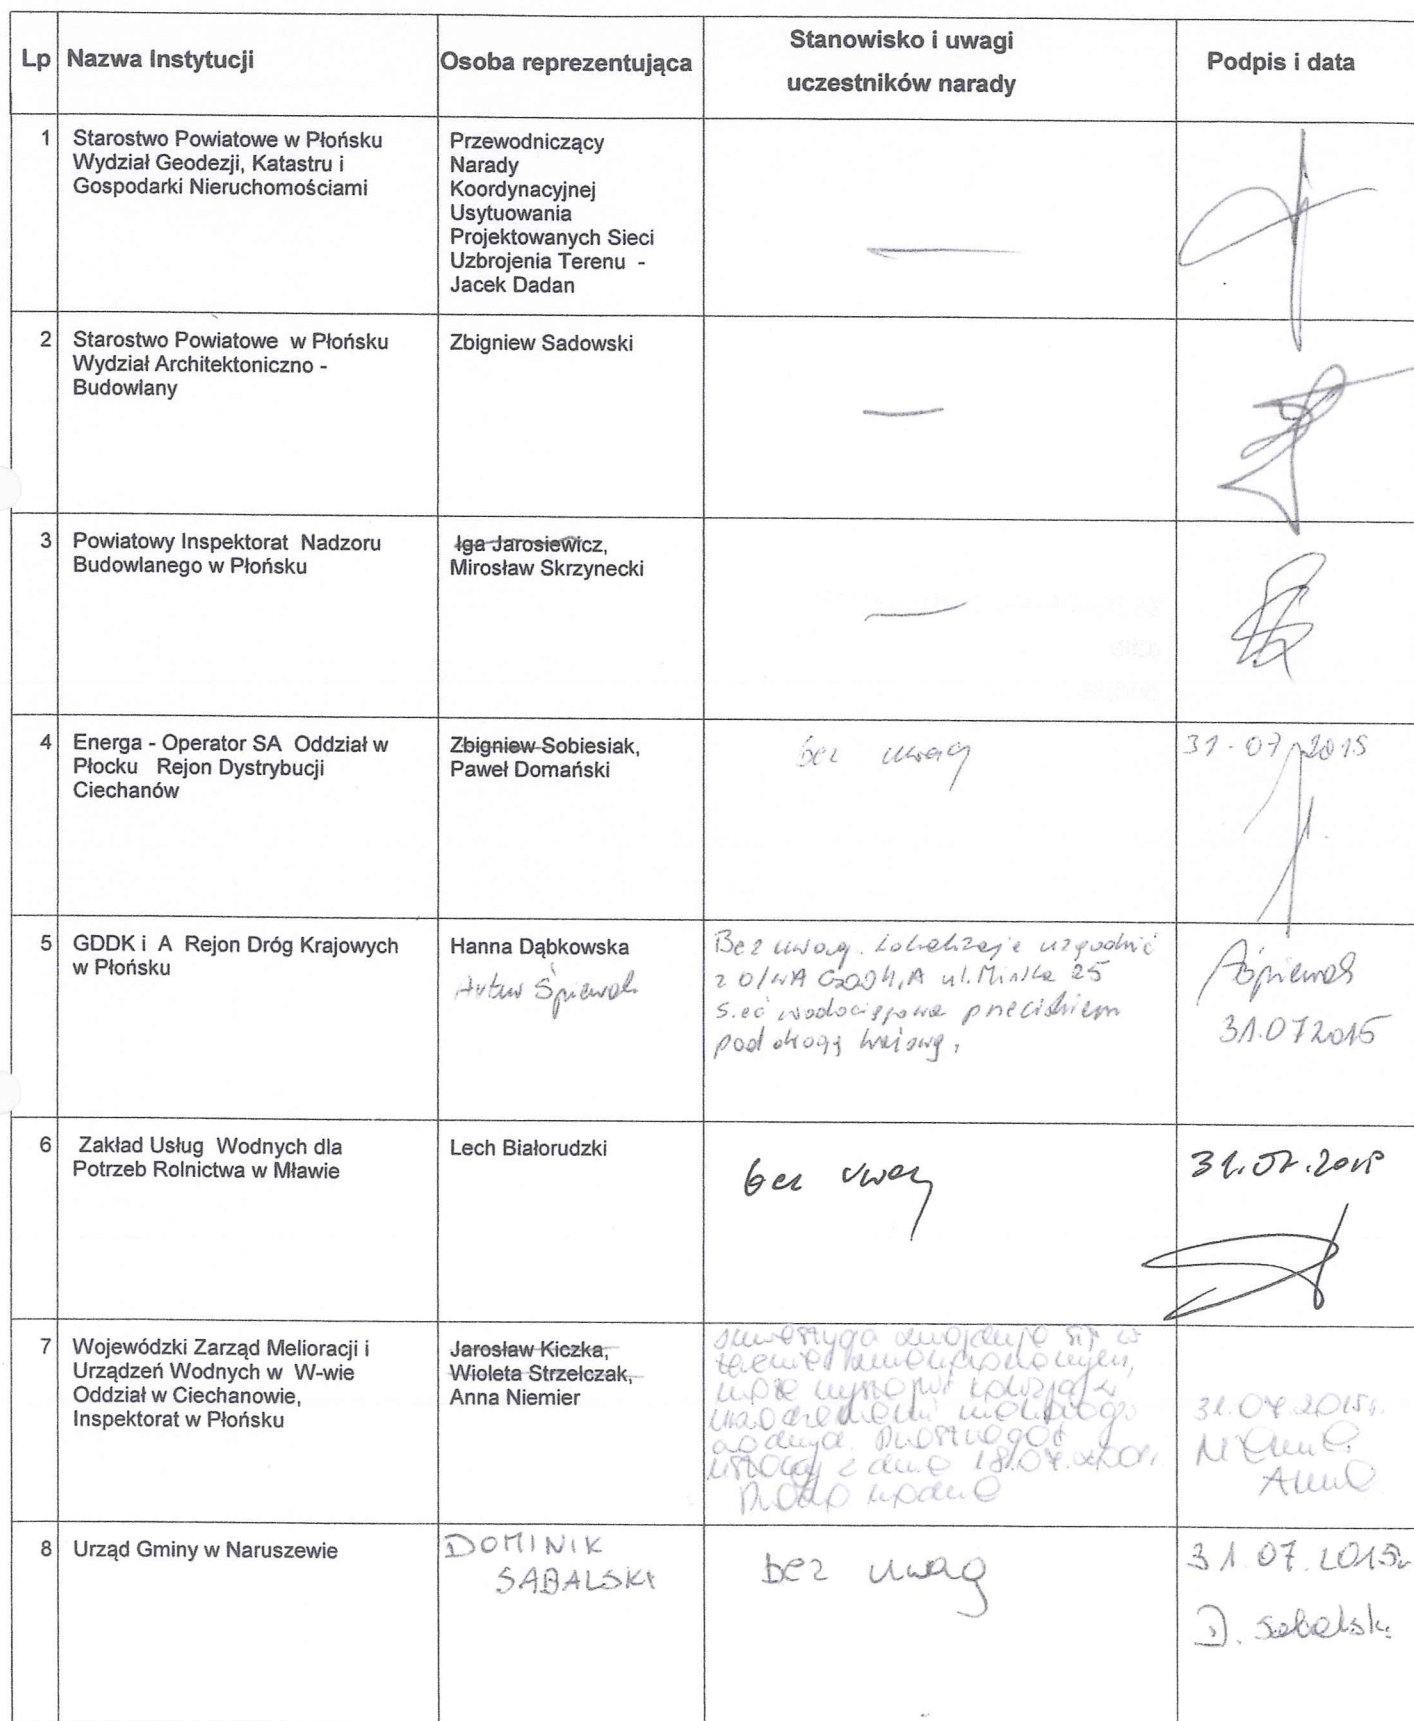 Lp Nazwa Instytucji Osoba reprezentująca Stanowisko i uwagi uczestników narady Podpis i data
1 Starostwo Powiatowe w Płońsku
Wydział Geodezji, Katastru i
Gospodarki Nieruchomościami
Przewodniczący
Narady
Koordynacyjnej
Usytuowania
Projektowanych Sieci
Uzbrojenia Terenu -
Jacek Dadan
2 Starostwo Powiatowe w Płońsku
Wydział Architektoniczno -
Budowlany
Zbigniew Sadowski
3 Powiatowy Inspektorat Nadzoru
Budowlanego w Płońsku
Iga Jarosiewicz,
Mirosław Skrzynecki
4 Energa - Operator SA Oddział w
Płocku Rejon Dystrybucji
Ciechanów
Zbigniew Sobiesiak,
Paweł Domański
bez uwag
31-07-2015
5 GDDK i A Rejon Dróg Krajowych
w Płońsku
Hanna Dąbkowska
Artur Śpiewak
Bez uwag. Lokalizację uzgodnić
z O/WA GDDKiA ul. Mińska 25
sieć wodociągowa przeciskiem
pod drogą krajową.
AŚpiewak
31.07.2015
6 Zakład Usług Wodnych dla
Potrzeb Rolnictwa w Mławie
Lech Białorudzki
bez uwag
31.07.2015
7 Wojewódzki Zarząd Melioracji i
Urządzeń Wodnych w W-wie
Oddział w Ciechanowie,
Inspektorat w Płońsku
Jarosław Kiczka,
Wioleta Strzelczak,
Anna Niemier
inwestycja znajduje się w
terenie zmeliorowanym,
może wystąpić kolizja z
urządzeniami
wodnych. Przestrzegać
ustawy z dnia 18.07.2001r.
Prawo wodne
31.07.2015r.
Niemier
Anna
8 Urząd Gminy w Naruszewie
DOMINIK
SABALSKI
bez uwag
31.07.2015r
D. Sabalski